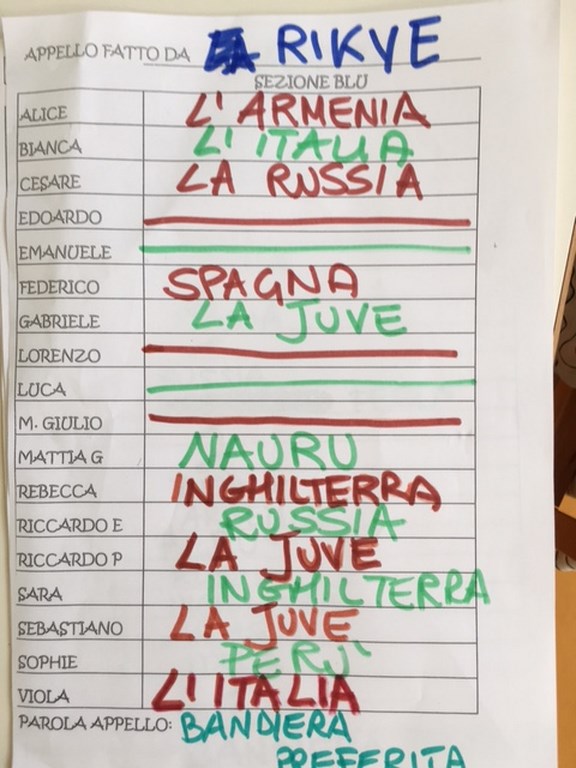 APPELLO FATTO DA RIKYE
SEZIONE BLU
ALICE L'ARMENIA
BIANCA L'ITALIA
CESARE LA RUSSIA
EDOARDO
EMANUELE
FEDERICO SPAGNA
GABRIELE LA JUVE
LORENZO
LUCA
M. GIULIO
MATTIA G NAURU
REBECCA INGHILTERRA
RICCARDO E RUSSIA
RICCARDO P LA JUVE
SARA INGHILTERRA
SEBASTIANO LA JUVE
SOPHIE PERU'
VIOLA L'ITALIA
PAROLA APPELLO: BANDIERA
PREFERITA